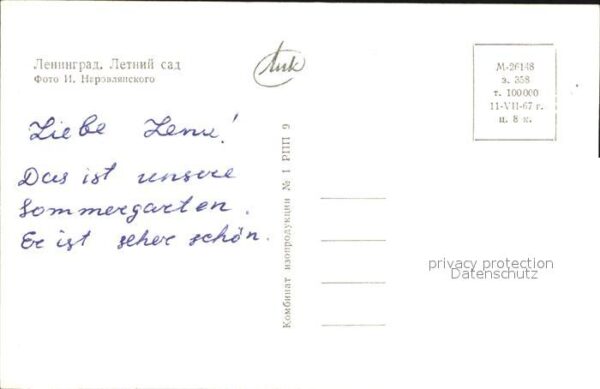 Ленинград. Летний сад
Фото И. Наровлянского
М-26148
з. 358
т. 100000
11-VII-67 г.
ц. 8 к.
Liebe Lene!
Das ist unsere
Sommergarten.
Er ist seher schön.
Комбинат изопродукции № 1 РПП 9
privacy protection
Datenschutz